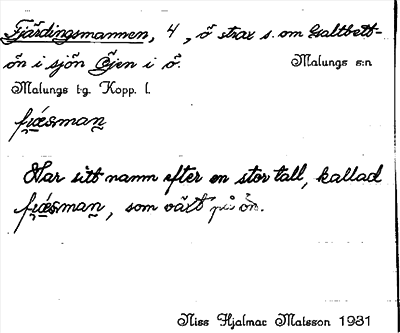 Fjärdingsmannen, 4, ö strax s. om Galtbett-
ön i sjön Öjen i ö. Malungs s:n
Malungs t:g. Kopp. l.
fjæsman
Har sitt namn efter en stor tall, kallad
fjæsman, som växt på ön.
Niss Hjalmar Matsson 1931